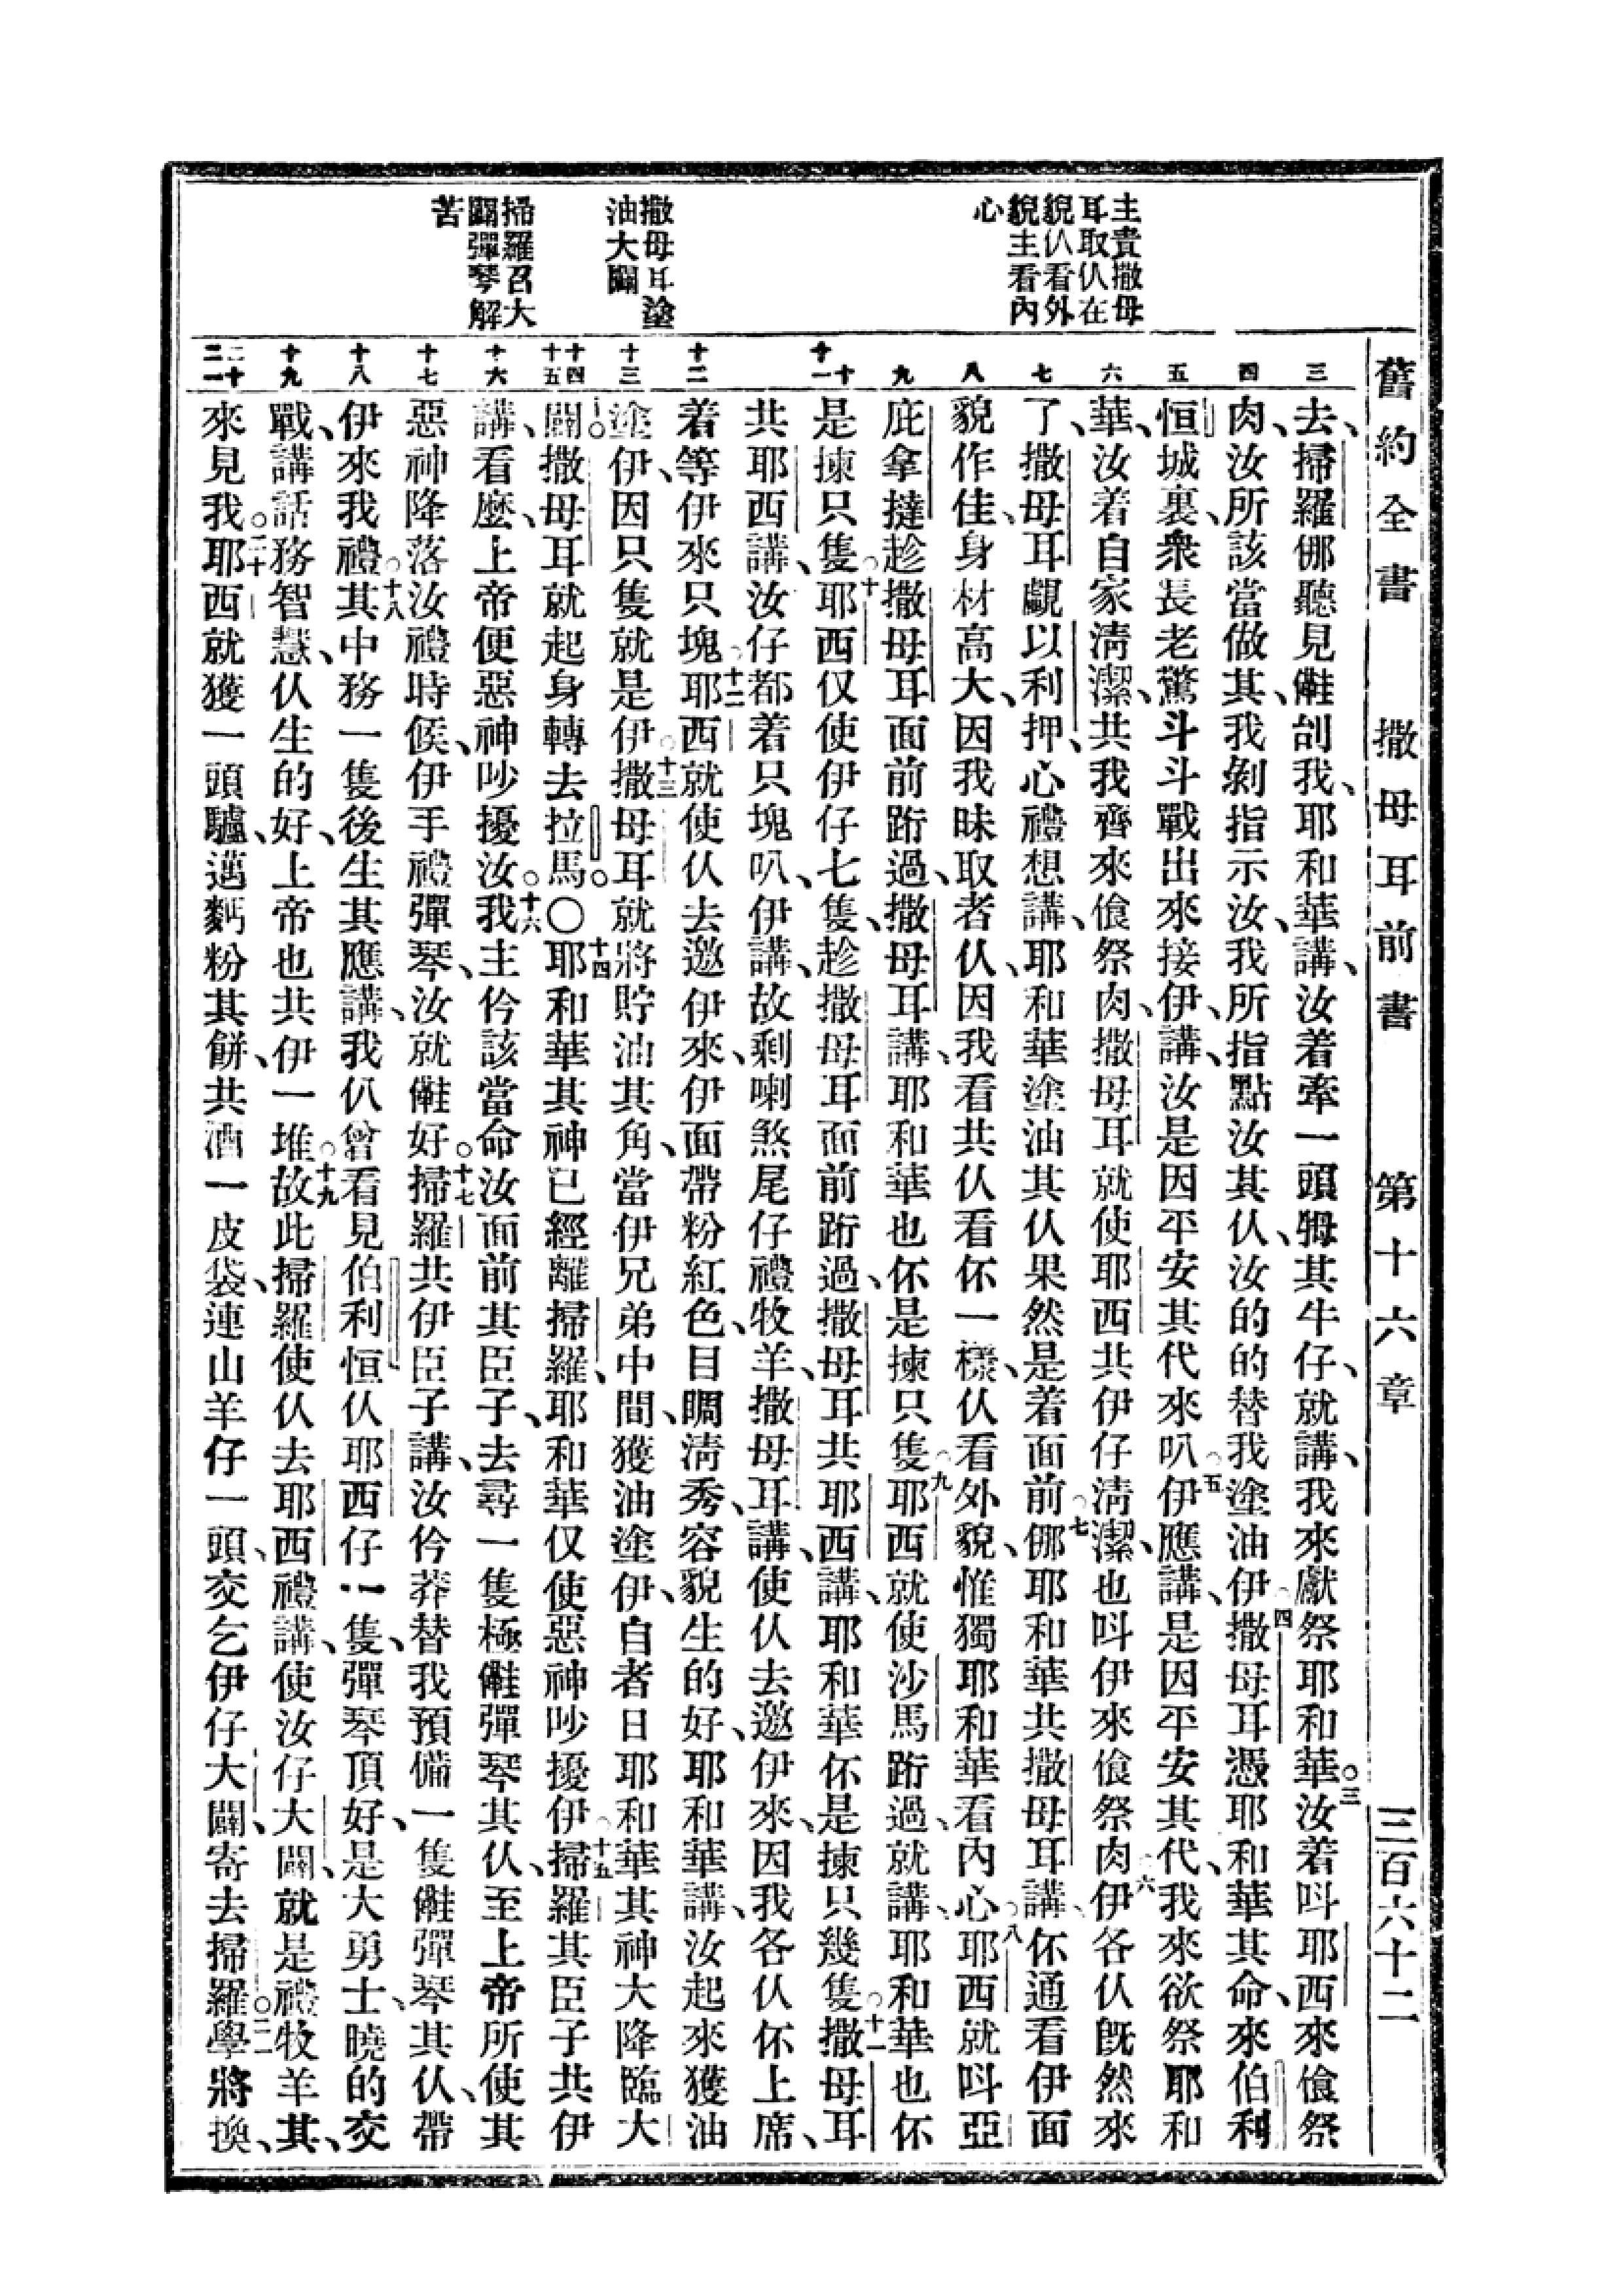 舊約全書　撒母耳前書　第十六章　三百六十二
主責撒母
耳取仈在
貌仈看外
貌主看內
心
撒母耳塗
油大闢
掃羅召大
闢彈琴解
苦
三
四
五
六
七
八
九
十
十一
十二
十三
十四
十五
十六
十七
十八
十九
二十
二一
去、掃羅㑚聽見𫢗刣我、耶和華講、汝着牽一頭㹇其牛仔、就講、我來獻祭耶和華○三汝着呌耶西來飡祭
肉、汝所該當做其、我剝指示汝、我所指點汝其仈、汝的的替我塗油伊○四撒母耳憑耶和華其命、來伯利
恒城裏、衆長老驚斗斗戰出來接伊、講、汝是因平安其代來叭○五伊應講、是因平安其代、我來欲祭耶和
華、汝着自家淸潔、共我齊來飡祭肉、撒母耳就使耶西共伊仔淸潔、也呌伊來飡祭肉○六伊各仈旣然來
了、撒母耳覷以利押、心禮想講、耶和華塗油其仈果然是着面前○七㑚耶和華共撒母耳講、伓通看伊面
貌作佳、身材高大、因我昧取者仈、因我看共仈看伓一樣、仈看外貌、惟獨耶和華看內心○八耶西就呌亞
庇拿撻趁撒母耳面前跨過、撒母耳講、耶和華也伓是揀只隻○九耶西就使沙馬跨過、就講、耶和華也伓
是揀只隻○十耶西仅使伊仔七隻、趁撒母耳面前跨過、撒母耳共耶西講、耶和華伓是揀只幾隻○十一撒母耳
共耶西講、汝仔都着只塊叭、伊講、故剩喇煞尾仔禮牧羊、撒母耳講、使仈去邀伊來、因我各仈伓上席、
着等伊來只塊○十二耶西就使仈去邀伊來、伊面帶粉紅色、目睭淸秀、容貌生的好、耶和華講、汝起來獲油
塗伊、因只隻就是伊○十三撒母耳就將貯油其角、當伊兄弟中間、獲油塗伊、自者日耶和華其神大降臨大
闢○撒母耳就起身轉去拉馬○○十四耶和華其神已經離掃羅、耶和華仅使惡神吵擾伊○十五掃羅其臣子共伊
講、看麽、上帝便惡神吵擾汝○十六我主仱該當命汝面前其臣子、去尋一隻極𫢗彈琴其仈、至上帝所使其
惡神降落汝禮時候、伊手禮彈琴、汝就𫢗好○十七掃羅共伊臣子講、汝仱莽替我預備一隻𫢗彈琴其仈、帶
伊來我禮○十八其中務一隻後生其應講、我仈曾看見伯利恒仈耶西仔一隻、彈琴頂好、是大勇士、曉的交
戰、講話務智慧、仈生的好、上帝也共伊一堆○十九故此掃羅使仈去耶西禮講、使汝仔大闢、就是禮牧羊其、
來見我○二十耶西就獲一頭驢、邁麪粉其餅、共酒一皮袋、連山羊仔一頭、交乞伊仔大闢、寄去掃羅○二一學將換、